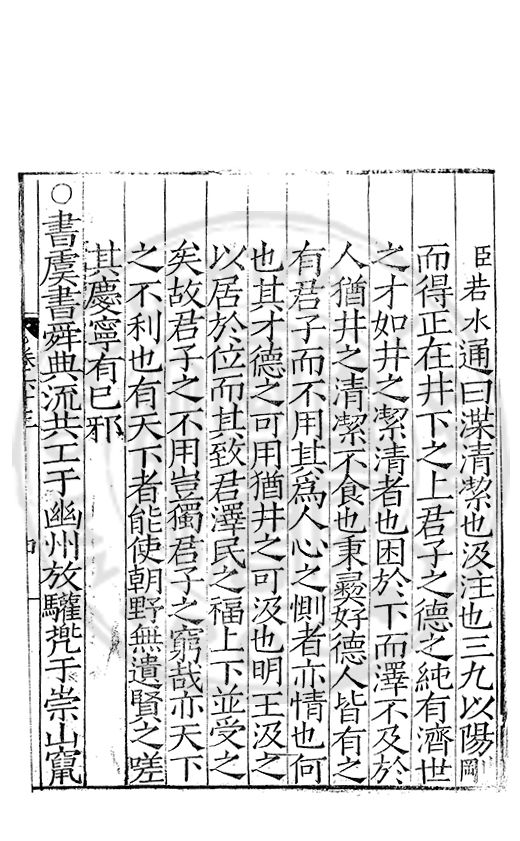 臣若水通曰渫清潔也汲注也三九以陽剛
而得正在井下之上君子之德之純有濟世
之才如井之潔清者也困於下而澤不及於
人猶井之清潔不食也秉彛好德人皆有之
有君子而不用其為人心之惻者亦情也何
也其才德之可用猶井之可汲也明王汲之
以居於位而其致君澤民之福上下並受之
矣故君子之不用豈獨君子之窮哉亦天下
之不利也有天下者能使朝野無遺賢之嗟
其慶寧有已邪
○書虞書舜典流共工于幽州放驩兜于崇山竄